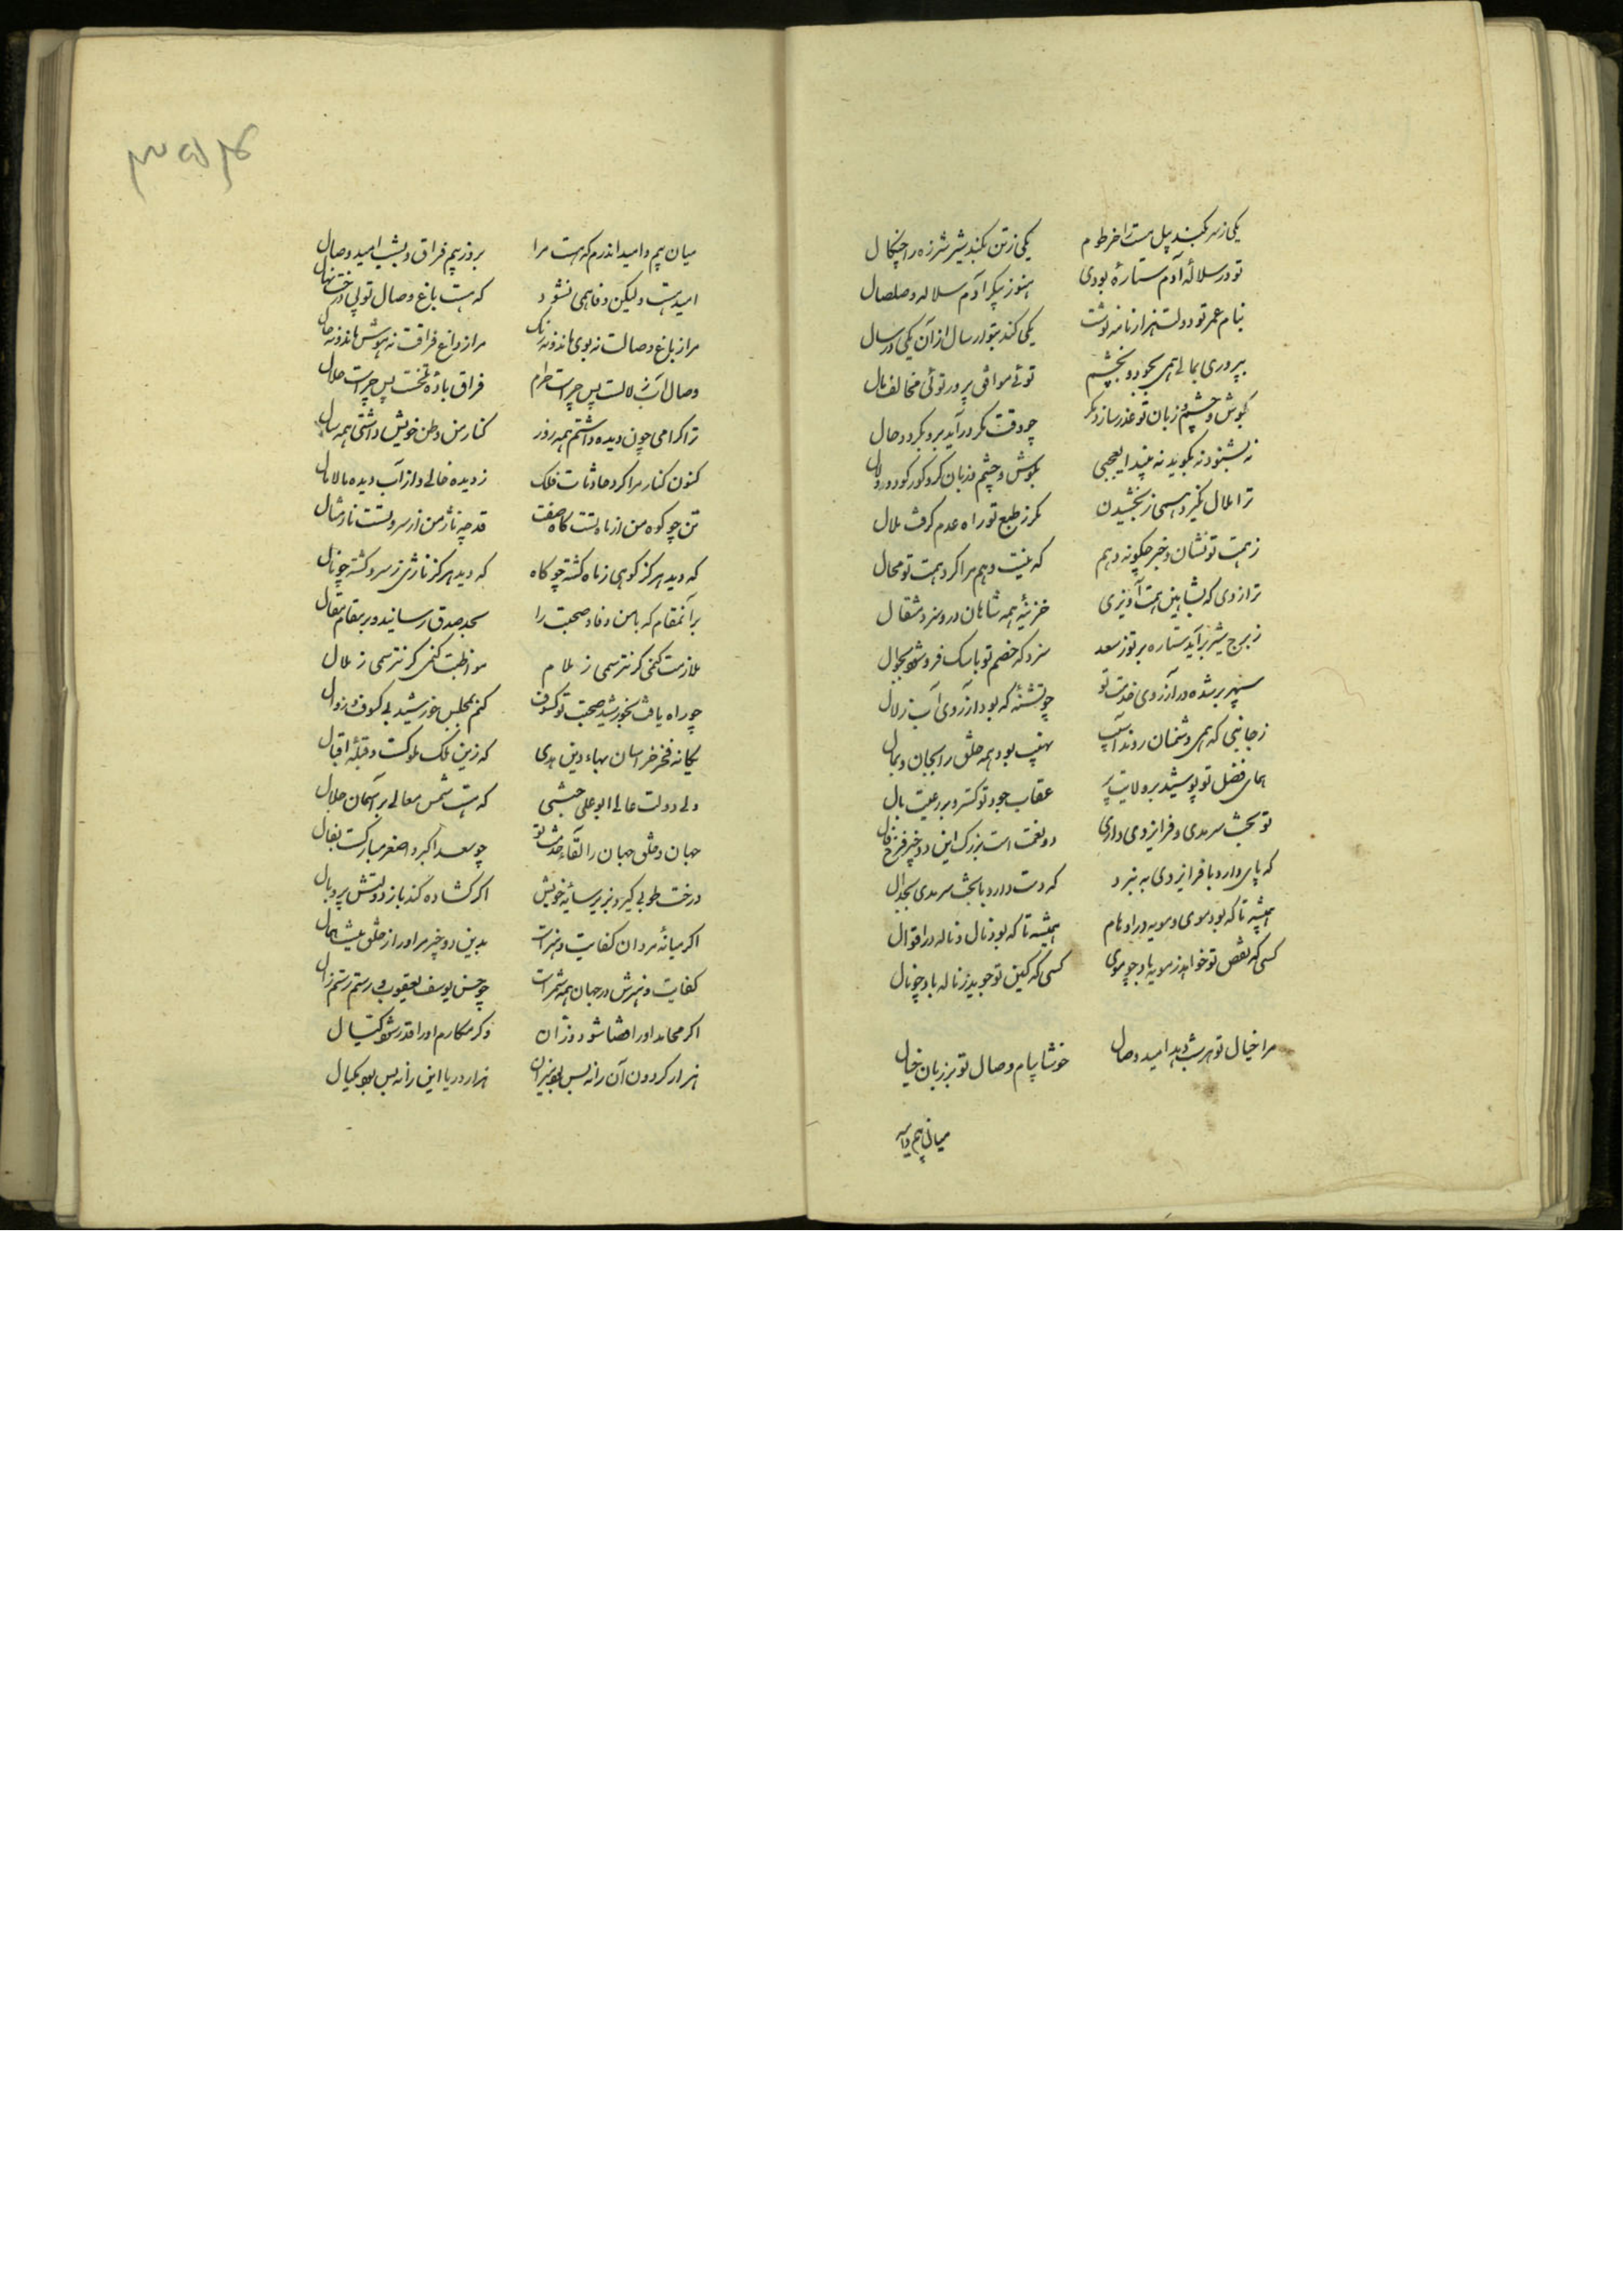 یکی ز سر بکند پیل مست را خرطوم یکی ز تن بکند شیر شرزه را چنگال
تو در سلالهٔ آدم ستارهٔ بودی هنوز پیکر آدم سلاله و صلصال
بنام عمر تو دولت هزار نامه نوشت یکی کند بتو ارسال از آن یکی در سال
بپروری بمالی همی بجود و بخشم توئی موافق پرور توئی مخالف مال
بگوش و چشم و زبان تو عذر سازد مگر چو وقت مکر درآید برو بگردد حال
نه بشنود نه بگوید نه بیند ایعجبی بگوش و چشم و زبان کر و کور گردد و لال
ترا ملال نگیرد همی ز بخشیدن مگر ز طبع تو راه عدم گرفت ملال
ز همت تو نشان و خبر چگونه دهم که نیست وهم مرا گرد همت تو محال
ترازوی که بشاهین همت آویزی خزینهٔ همه شاهان درو سزد مثقال
ز برج شیر برآید ستاره بر تو ز سعد سزد که خصم تو با سگ فرو شود بجوال
سپهر بر شده در آرزوی خدمت تو چو تشنهٔ که بود آرزوی آب زلال
ز جانبی که همی دشمنان روند آسیب نهیب بود همه خلق را بجان و بمال
همای فضل تو پوشید بر ولایت پر عقاب جود تو گسترد بر رعیت بال
تو بخت سرمدی و فر ایزدی داری دو نعمت است بزرگ این دو چیز فرخ فال
که پای دارد با فر ایزدی به نبرد که دست دارد با بخت سرمدی بجدال
همیشه تا که بود موی و مویه در اوهام همیشه تا که بود نال و ناله در اقوال
کسی که نقص تو خواهد ز مویه باد چو موی کسی که کین تو جوید ز ناله باد چو نال
مرا خیال تو هر شب دهد امید وصال خوشا پیام وصال تو بر زبان خیال
میان بیم و امید
میان بیم و امید اندرم که هست مرا بروز بیم فراق و بشب امید وصال
امید هست ولیکن وفا همی نشود که هست باغ وصال تو بی درخت نهال
مرا ز باغ وصالت نه بوی ماند و نه رنگ مرا ز داغ فراقت نه هوش ماند و نه حال
وصال آب زلالست پس چراست حرام فراق بادهٔ تلخست پس چراست حلال
ترا گرامی چون دیده داشتم همه روز کنار من وطن خویش داشتی همه سال
کنون کنار مرا کرد حادثات فلک ز دیده خالی و از آب دیده مالامال
تن چو کوه من از ناه گشت کاه صفت قد چو ناژ من از سرو گشت نار مثال
که دید هرگز کوهی ز ناه گشته چو کاه که دید هرگز ناژی ز سرو گشته چو نال
بر آنمقام که با من وفا و صحبت را بحد صدق رسانید و بر مقام مقال
ملازمت کنمی گر نترسمی ز ملام مواظبت کنمی گر نترسمی ز ملال
چو راه یافت بخورشید صحبت تو کسوف کنم بمجلس خورشید بی کسوف و زوال
یگانه فخر خراسان بهاء دین هدی که زین ملک ملوکست و قبلهٔ اقبال
ولی دولت عالی ابو علی حبشی که هست شمس معالی بر آسمان جلال
جهان و خلق جهان را لقاء خدمت تو چو سعد اکبر و اصغر مبارکست بفال
درخت طوبی گیرد بزیر سایهٔ خویش اگر گشاده کند باز دولتش پر و بال
اگر میانهٔ مردان کفایت و هنر است بدین دو چیز مر او را ز خلق نیست همال
کفایت و هنرش در جهان همه سمر است چو حسن یوسف یعقوب و رستم رستم زال
اگر محامد او را قضا شود وزان وگر مکارم او را قدر شود کیال
هزار گردون آن را نه بس بود میزان هزار دریا این را نه بس بود مکیال